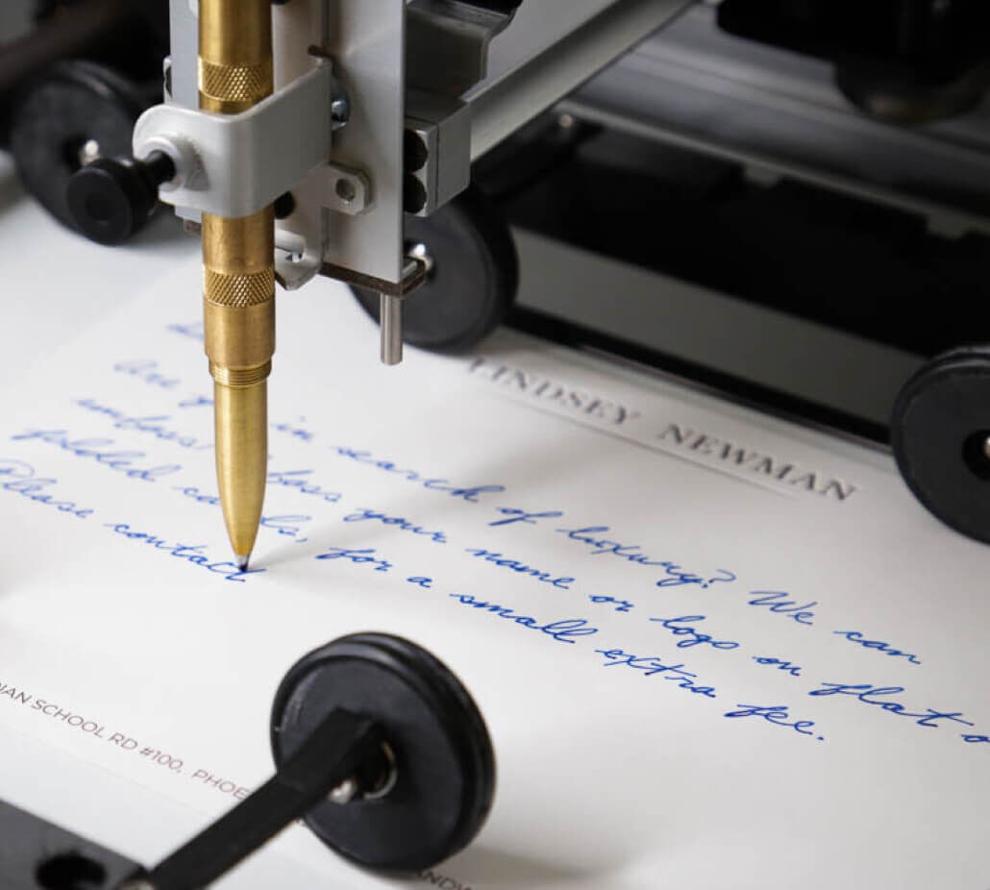 LINDSEY NEWMAN
are in search of luxury? We can
emboss your name or logo on flat
folded for a small extra fee.
Please contact
SCHOOL RD #100,